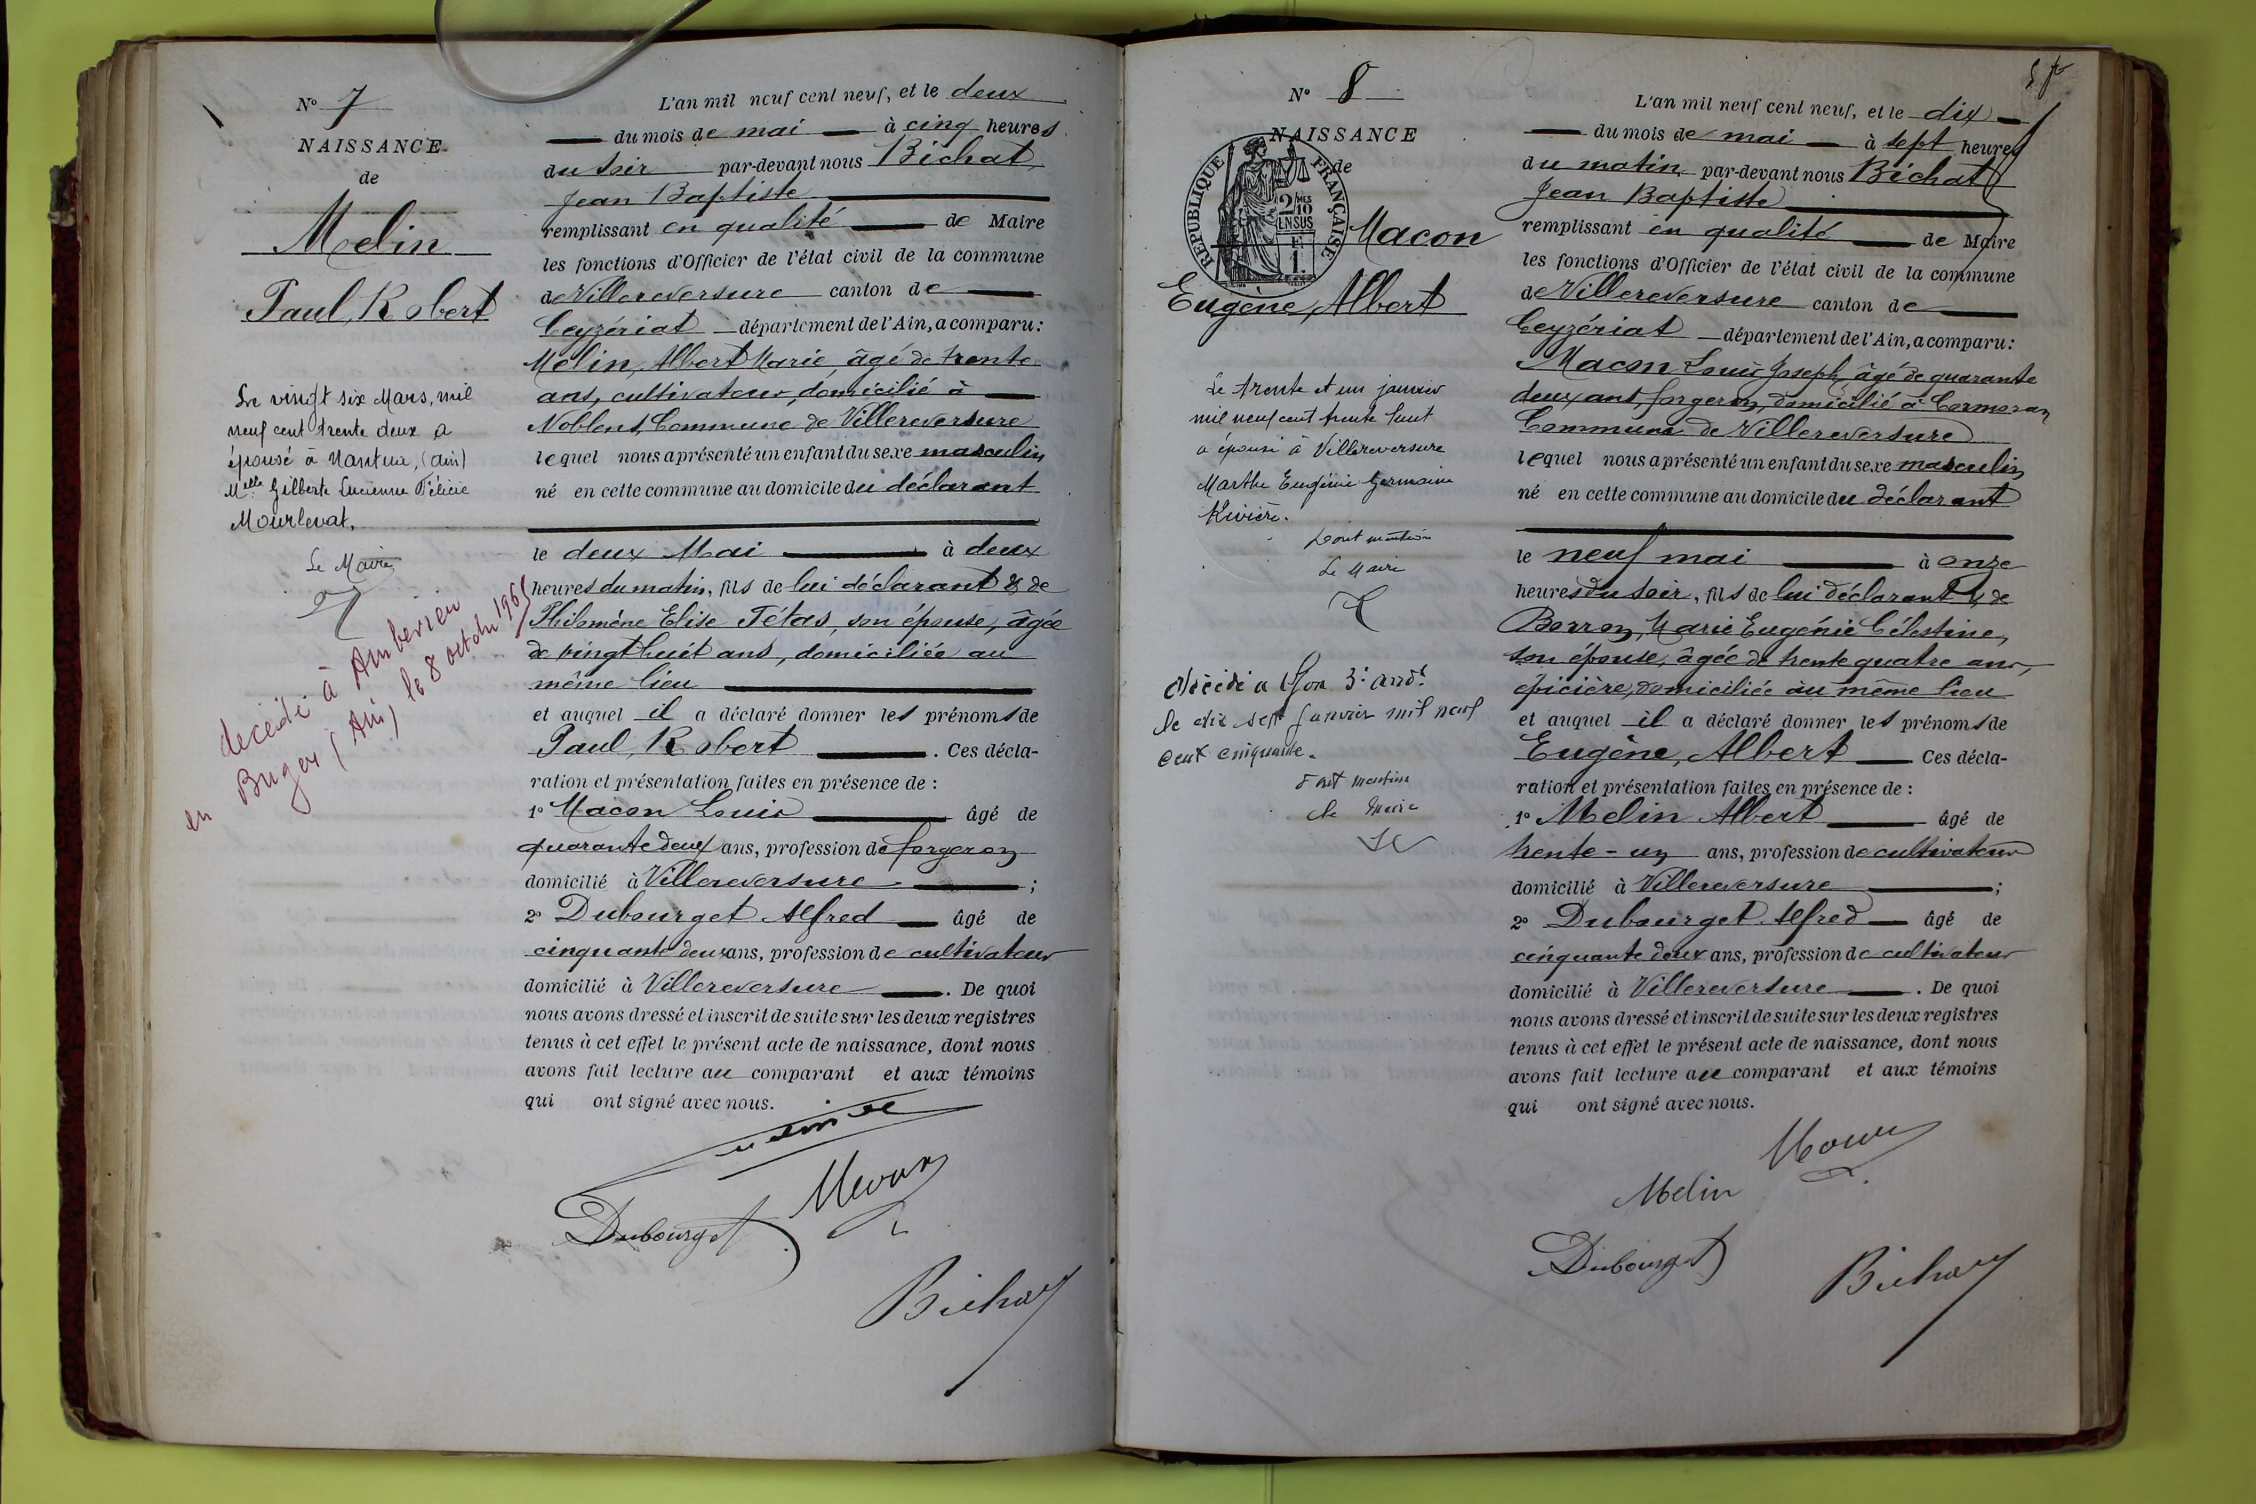 N° 7
NAISSANCE
de
Melin
Paul, Robert
Le vingt six Mars, mil
neuf cent trente deux a
épousé à Nantua, (Ain)
Melle Gilberte Lucienne Félicie
Mourlevat.
Le Maire
décédé à Ambérieu
en Bugey (Ain) le 8 octobre 1965
L'an mil neuf cent neuf, et le deux
du mois de mai à cinq heures
du soir par-devant nous Bichat
Jean Baptiste
remplissant en qualité de Maire
les fonctions d'Officier de l'état civil de la commune
de Villereversure canton de
Ceyzériat département de l'Ain, a comparu:
Melin, Albert Marie, âgé de trente
ans, cultivateur, domicilié à
Noblens, Commune de Villereversure
lequel nous a présenté un enfant du sexe masculin
né en cette commune au domicile du déclarant
le deux Mai à deux
heures du matin, fils de lui déclarant & de
Philomène Elise Tétas, son épouse, âgée
de vingt huit ans, domiciliée au
même lieu
et auquel il a déclaré donner les prénoms de
Paul, Robert. Ces décla-
ration et présentation faites en présence de :
1° Macon Louis âgé de
quarante deux ans, profession de forgeron
domicilié à Villereversure ;
2° Dubourget Alfred âgé de
cinquante deux ans, profession de cultivateur
domicilié à Villereversure. De quoi
nous avons dressé et inscrit de suite sur les deux registres
tenus à cet effet le présent acte de naissance, dont nous
avons fait lecture au comparant et aux témoins
qui ont signé avec nous.
Dubourget
Bichat
N° 8
NAISSANCE
de
RÉPUBLIQUE FRANÇAISE
2/10 EN SUS
Macon
Eugène, Albert
Le trente et un janvier
mil neuf cent trente
a épousé à Villereversure
Marthe Eugénie Germaine
Rivière.
Dont mention
Le Maire
Décédé à Lyon 3e arrdt
le dix sept janvier mil neuf
cent cinquante.
Dont mention
Le Maire
L'an mil neuf cent neuf, et le dix
du mois de mai à sept heures
du matin par-devant nous Bichat
Jean Baptiste
remplissant en qualité de Maire
les fonctions d'Officier de l'état civil de la commune
de Villereversure canton de
Ceyzériat département de l'Ain, a comparu:
Macon Louis Joseph, âgé de quarante
deux ans, forgeron, domicilié à Cormoran
Commune de Villereversure
lequel nous a présenté un enfant du sexe masculin
né en cette commune au domicile du déclarant
le neuf mai à onze
heures du soir, fils de lui déclarant & de
Borron, Marie Eugénie Célestine,
son épouse, âgée de trente quatre ans,
épicière, domiciliée au même lieu
et auquel il a déclaré donner les prénoms de
Eugène, Albert Ces décla-
ration et présentation faites en présence de :
1° Melin Albert âgé de
trente-un ans, profession de cultivateur
domicilié à Villereversure ;
2° Dubourget Alfred âgé de
cinquante deux ans, profession de cultivateur
domicilié à Villereversure. De quoi
nous avons dressé et inscrit de suite sur les deux registres
tenus à cet effet le présent acte de naissance, dont nous
avons fait lecture au comparant et aux témoins
qui ont signé avec nous.
Melin
Dubourget
Bichat